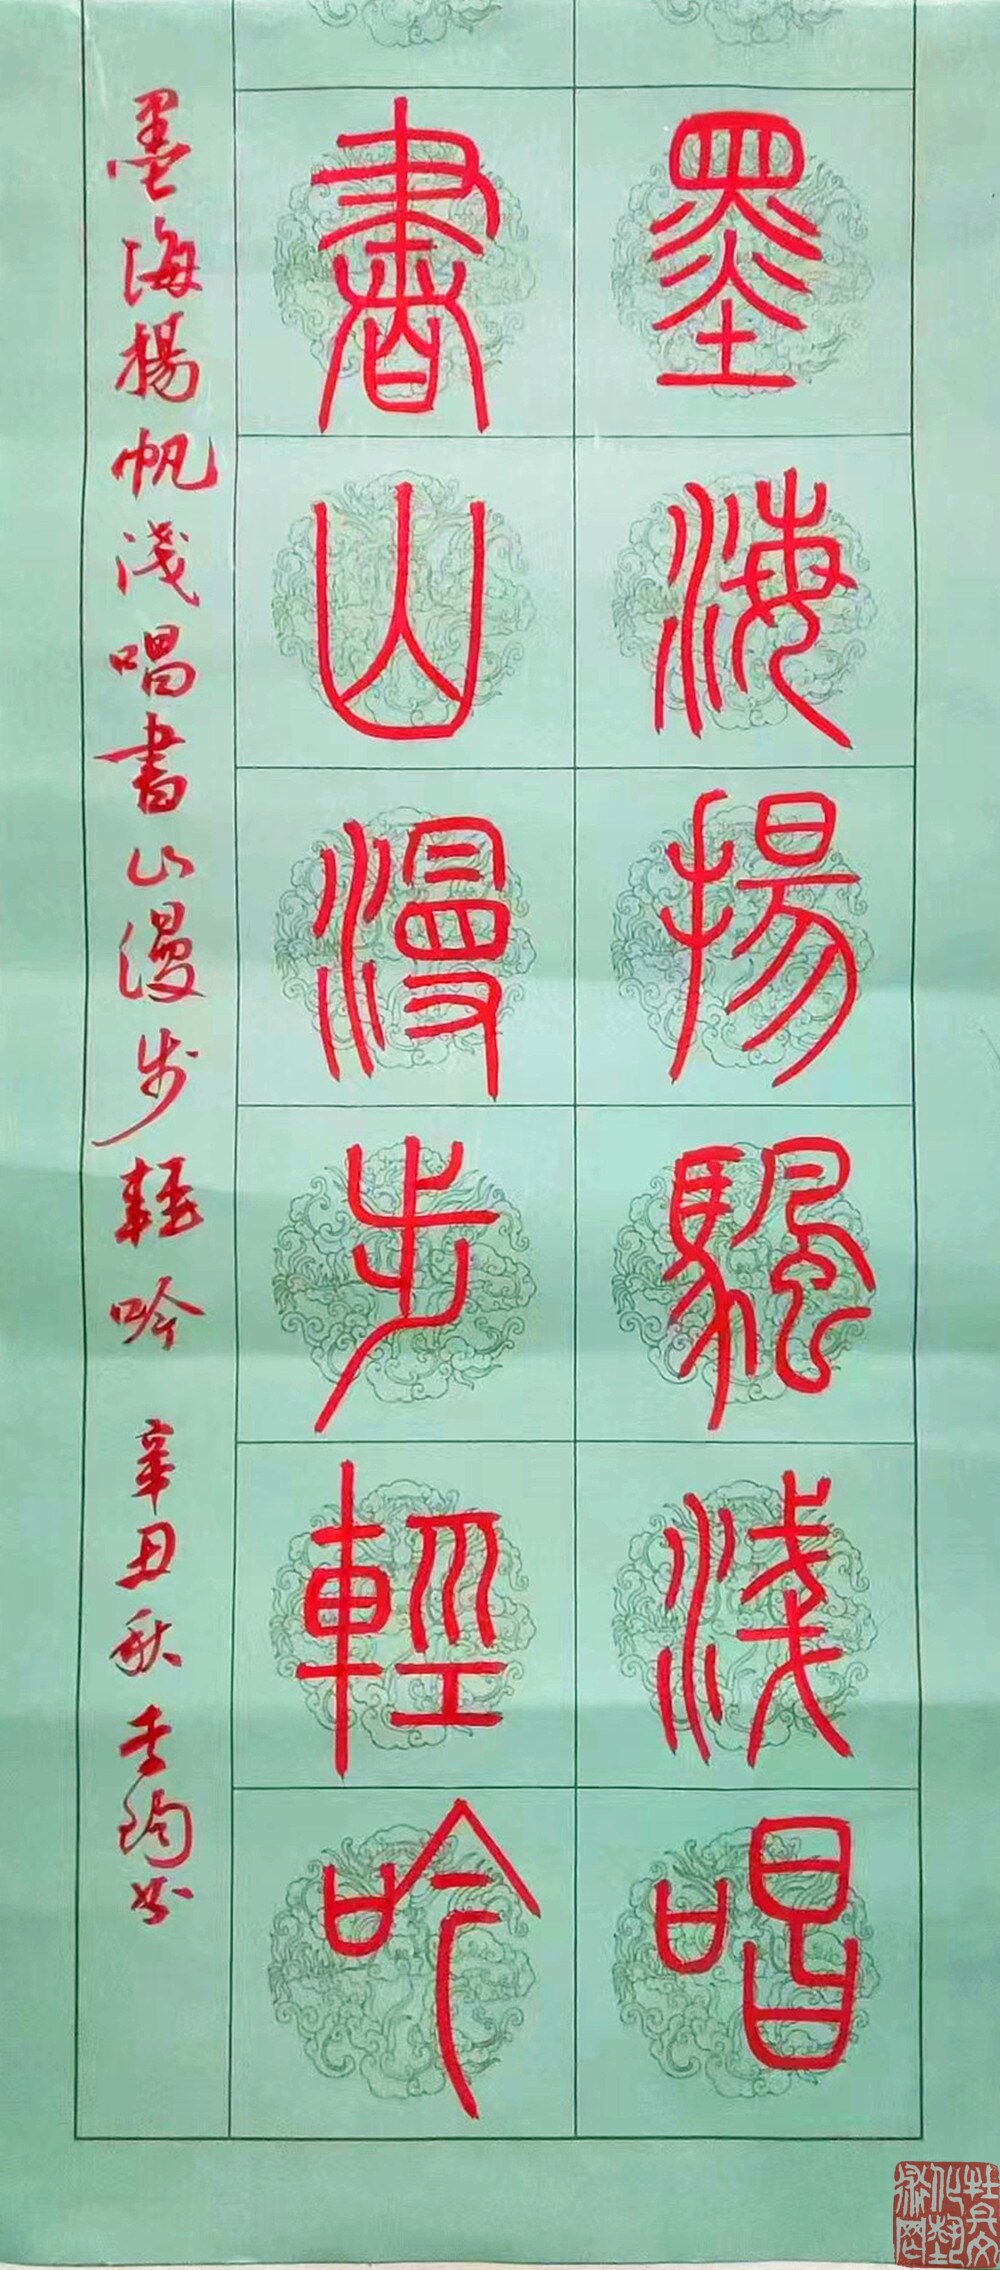 墨海揚颿淺唱
書山漫步輕吟
墨海揚帆淺唱書山漫步輕吟 辛丑秋